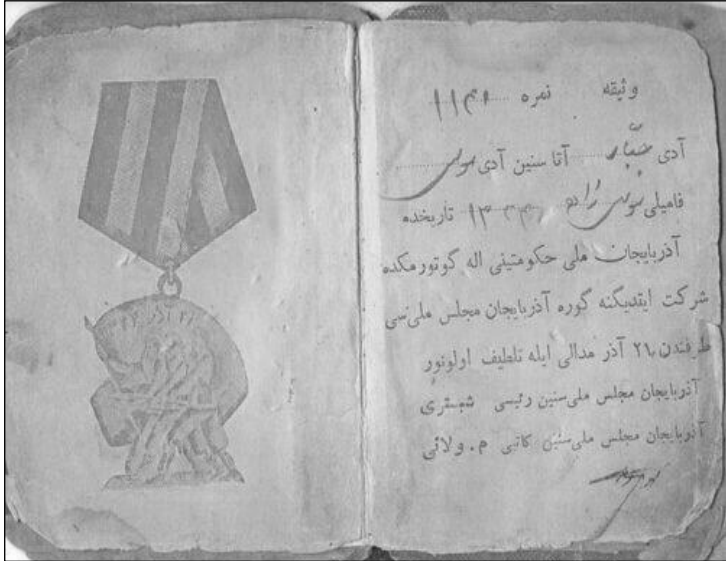 ۲۱ آذر
وثیقه نمره
آدی جبار آتا سنین آدی موسی
فامیلی موسی زاده تاریخده
آذربایجان ملی حکومتینی اله گوتورمکده
شرکت ایتدیگنه گوره آذربایجان مجلس ملی‌سی
طرفندن ۲۱ آذر مدالی ایله تلطیف اولونور
آذربایجان مجلس ملی‌سنین رئیسی شبستری
آذربایجان مجلس ملی‌سنین کاتبی م. ولائی